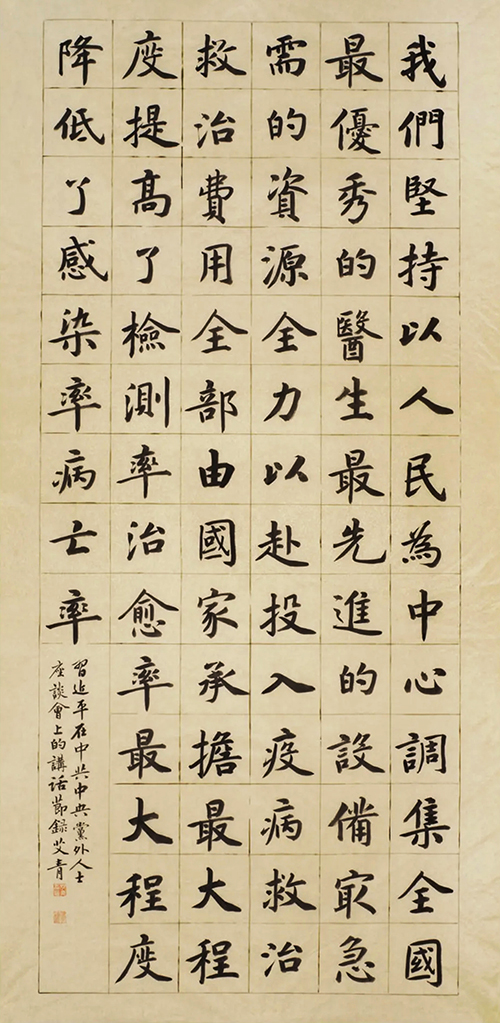 我們堅持以人民為中心調集全國
最優秀的醫生最先進的設備冣急
需的資源全力以赴投入疫病救治
救治費用全部由國家承擔最大程
度提高了檢測率治愈率最大程度
降低了感染率病亡率
習近平在中共中央黨外人士
座談會上的講話節錄艾青